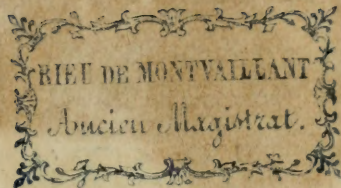 RIEU DE MONTVAILLANT
Ancien Magistrat.